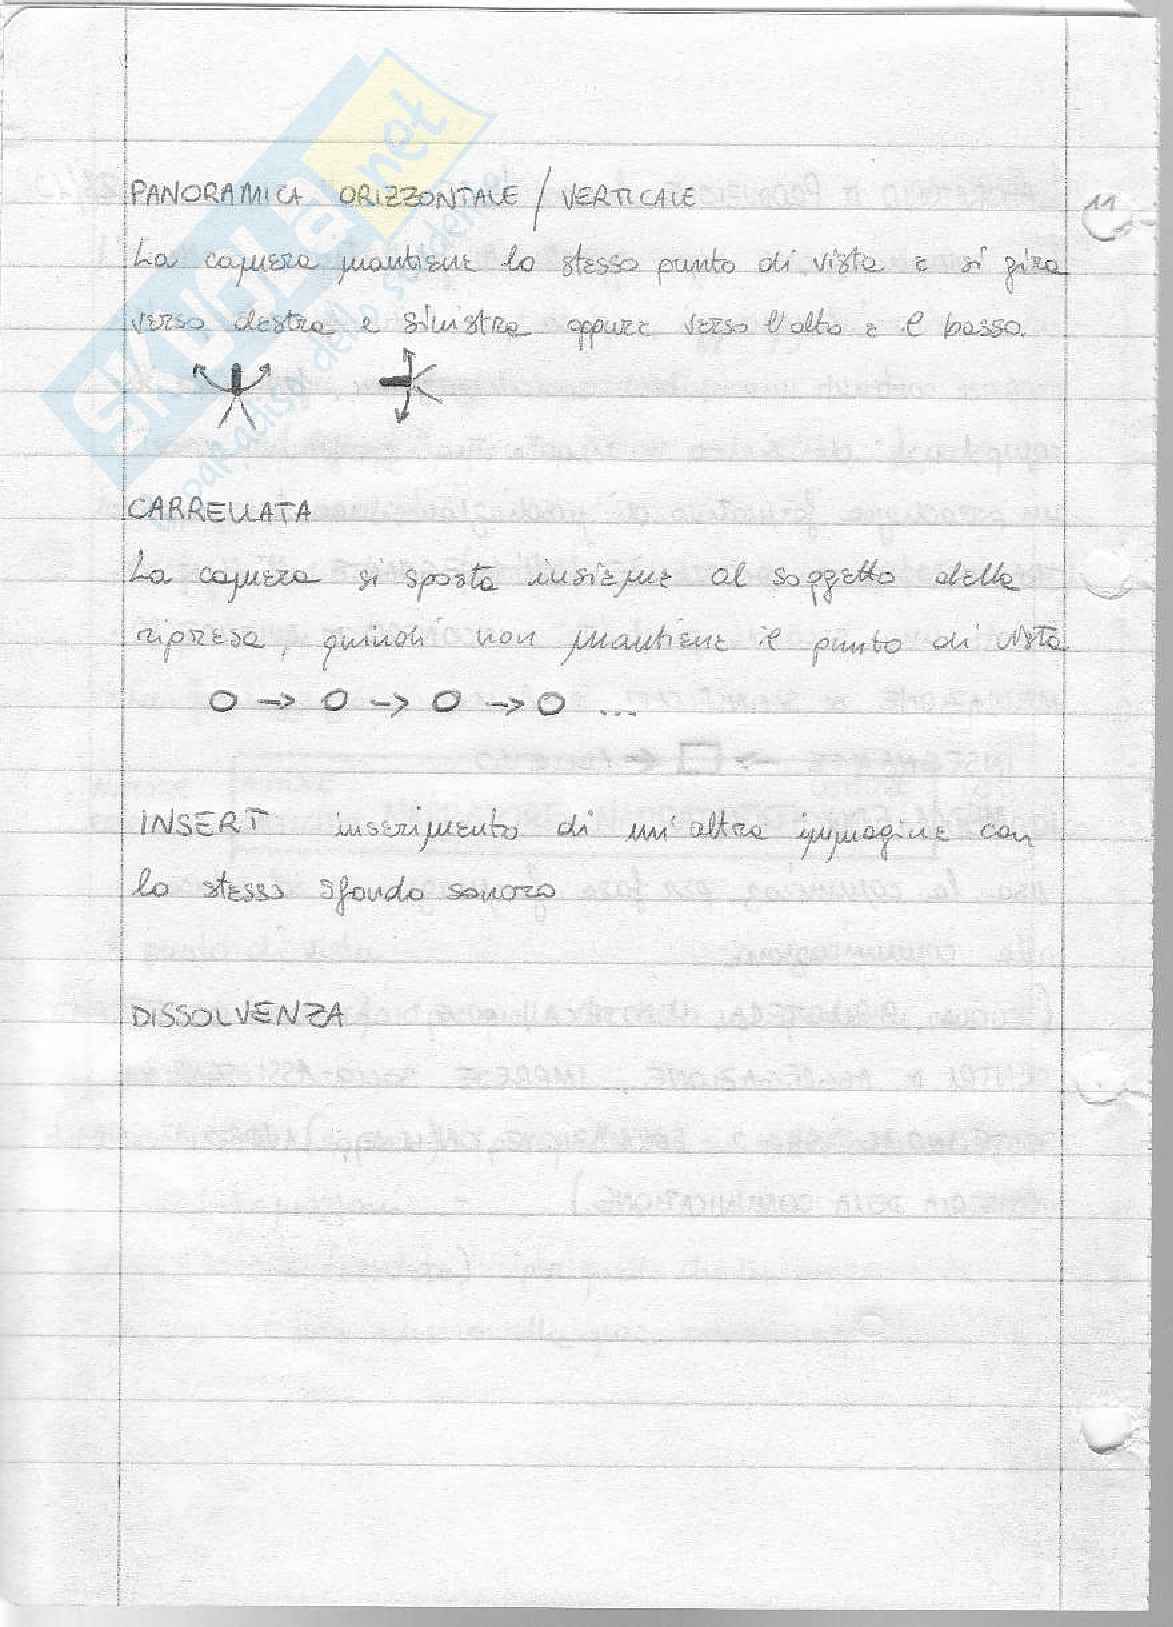 SKUOLA.net
il paradiso dello studente
11
PANORAMICA ORIZZONTALE / VERTICALE
La camera mantiene lo stesso punto di vista e si gira
verso destra e sinistra oppure verso l'alto e il basso.
CARRELLATA
La camera si sposta insieme al soggetto della
ripresa, quindi non mantiene il punto di vista
O → O → O → O ...
INSERT inserimento di un'altra immagine con
lo stesso sfondo sonoro
DISSOLVENZA